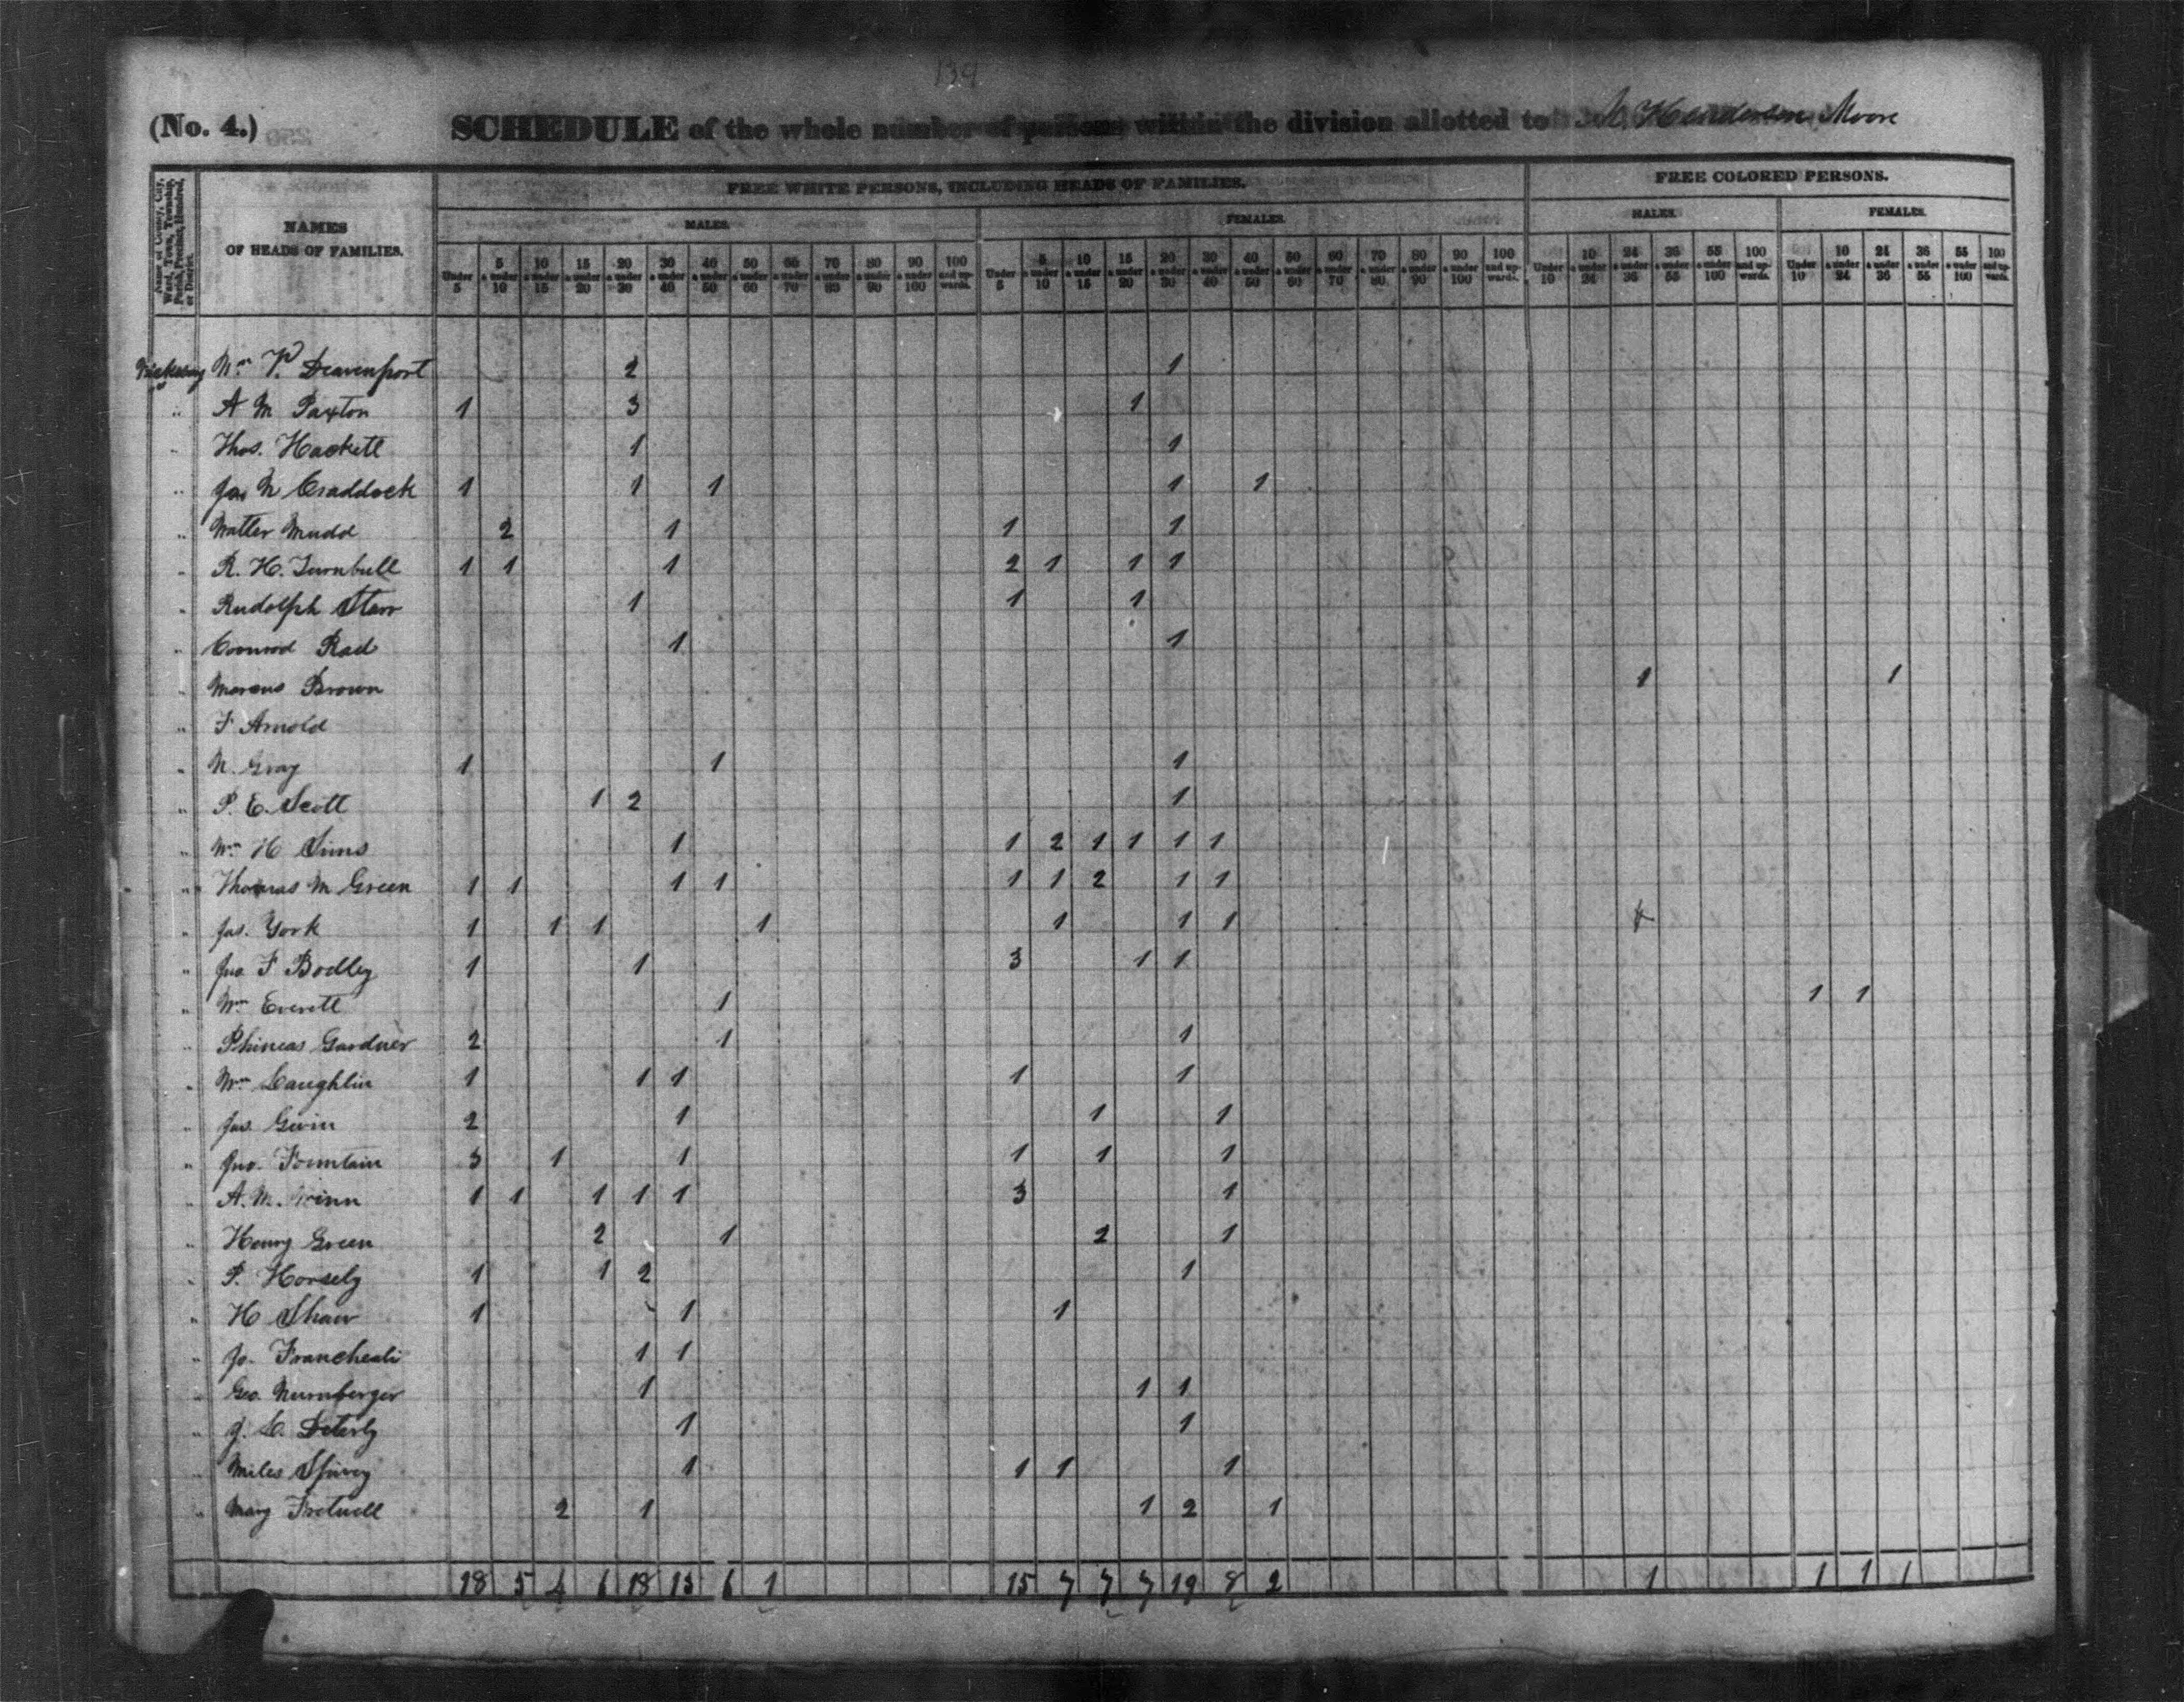 139
(No. 4.) SCHEDULE of the whole number of persons within the division allotted to Henderson Moore
Name of County, City, Ward, Town, Township, Parish, Precinct, Hundred, or District.
NAMES
OF HEADS OF FAMILIES.
FREE WHITE PERSONS, INCLUDING HEADS OF FAMILIES.
FREE COLORED PERSONS.
MALES. FEMALES. MALES. FEMALES.
Under 5 5 & under 10 10 & under 15 15 & under 20 20 & under 30 30 & under 40 40 & under 50 50 & under 60 60 & under 70 70 & under 80 80 & under 90 90 & under 100 100 and upwards. Under 5 5 & under 10 10 & under 15 15 & under 20 20 & under 30 30 & under 40 40 & under 50 50 & under 60 60 & under 70 70 & under 80 80 & under 90 90 & under 100 100 and upwards. Under 10 10 & under 24 24 & under 36 36 & under 55 55 & under 100 100 and upwards. Under 10 10 & under 24 24 & under 36 36 & under 55 55 & under 100 100 and upwards.
Vicksburg Wm V. Deavenport 2 1
" A M Paxton 1 3 1
" Thos. Hackett 1 1
" Jas N Craddock 1 1 1 1 1
" Walter Mudd 2 1 1 1
" R. H. Turnbull 1 1 1 2 1 1 1
" Rudolph Starr 1 1 1
" Conrod Rad 1 1
" Marcus Brown 1 1
" F Arnold
" N. Gray 1 1 1
" P. E. Scott 1 2 1
" Wm H Sims 1 1 2 1 1 1 1
" Thomas M Green 1 1 1 1 1 1 2 1 1
" Jas. York 1 1 1 1 1 1 1
" Jno F Bodley 1 1 3 1 1
" Wm Everett 1 1 1
" Phineas Gardner 2 1 1
" Wm Laughlin 1 1 1 1 1
" Jas Gwin 2 1 1 1
" Jno. Fountain 3 1 1 1 1 1
" A. M. Winn 1 1 1 1 1 3 1
" Henry Green 2 1 2 1
" P. Horsely 1 1 2 1
" H Shaw 1 1 1
" Jo. Francheali 1 1
" Geo. Nurnberger 1 1 1
" J. C. Deterly 1 1
" Miles Spivey 1 1 1 1
" Mary Fretwell 2 1 1 2 1
18 5 4 6 18 13 6 1 15 7 7 7 19 8 2 1 1 1 1